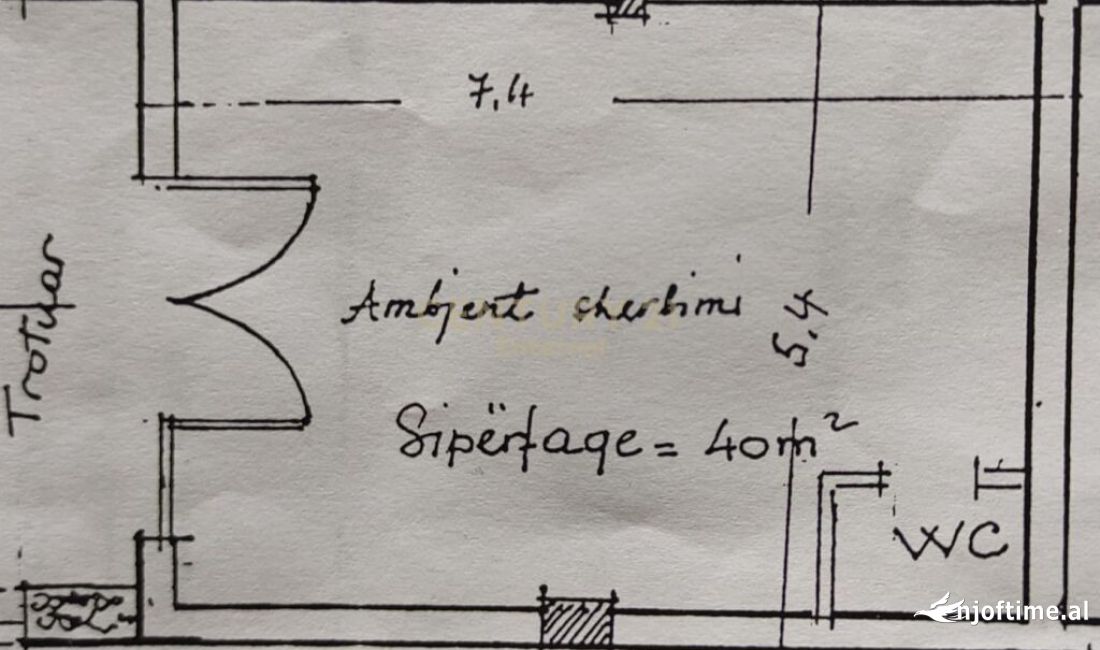 7,4
Ambjent sherbimi
5,4
Trotuar
Sipërfaqe = 40m²
WC
njoftime.al